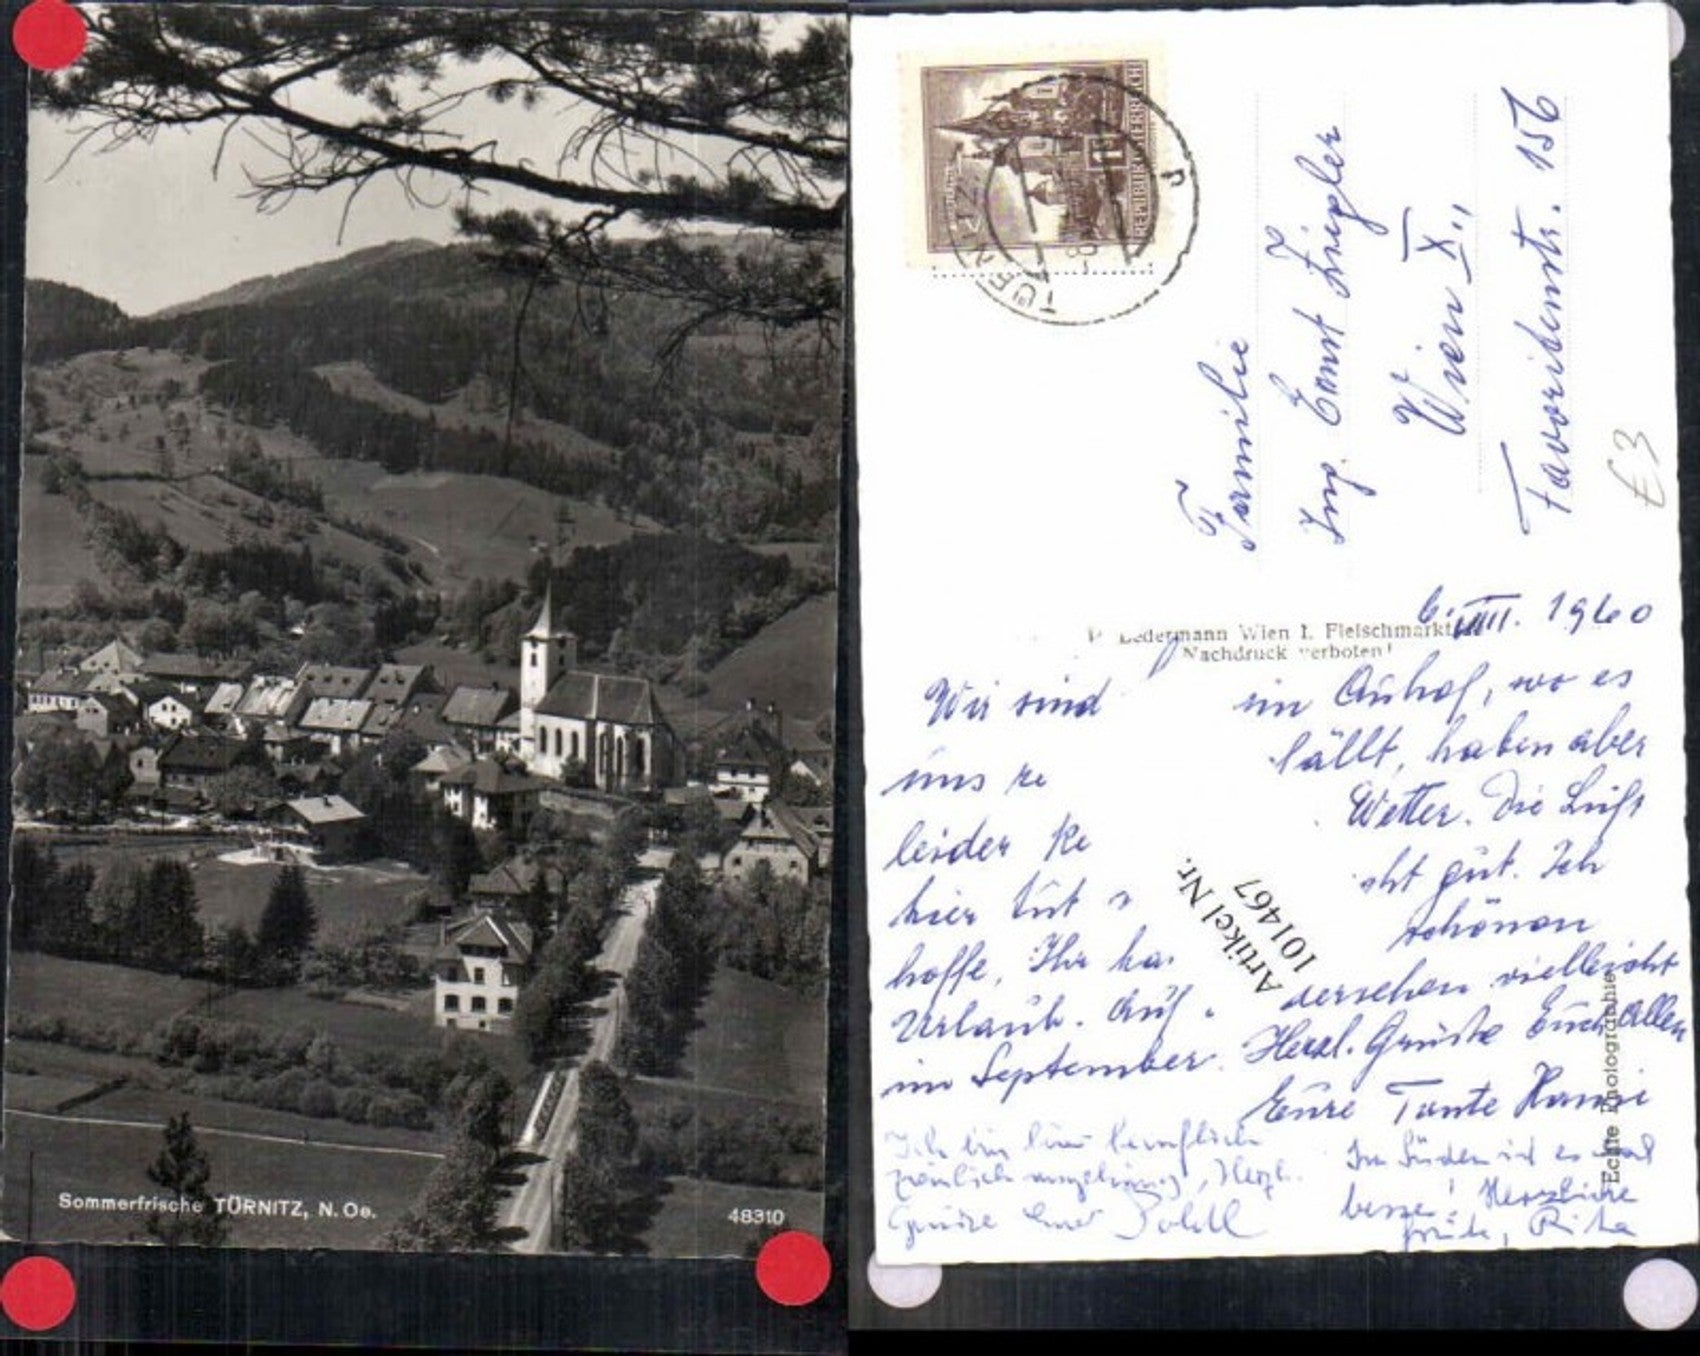 Sommerfrische TÜRNITZ, N. Oe.
48310
REPUBLIK ÖSTERREICH
1
TÜRNITZ
Familie
Ing. Ernst Ziegler
Wien X.,
Favoritenstr. 156
€3
P. Ledermann Wien I. Fleischmarkt
Nachdruck verboten!
6. VIII. 1960
Wir sind im Auhof, wo es
uns fällt, haben aber
leider Wetter. Die Luft
hier tut gut. Ich
hoffe, Ihr schönen
Urlaub. Auf vielleicht
im September. Herzl. Grüße Euch Allen
Eure Tante Hansi
Artikel Nr.
101467
Echte Photographie
Ich bin
ziemlich, Herzl.
Grüße
Im Süden ist es
besser! Herzliche
Grüße, Rita